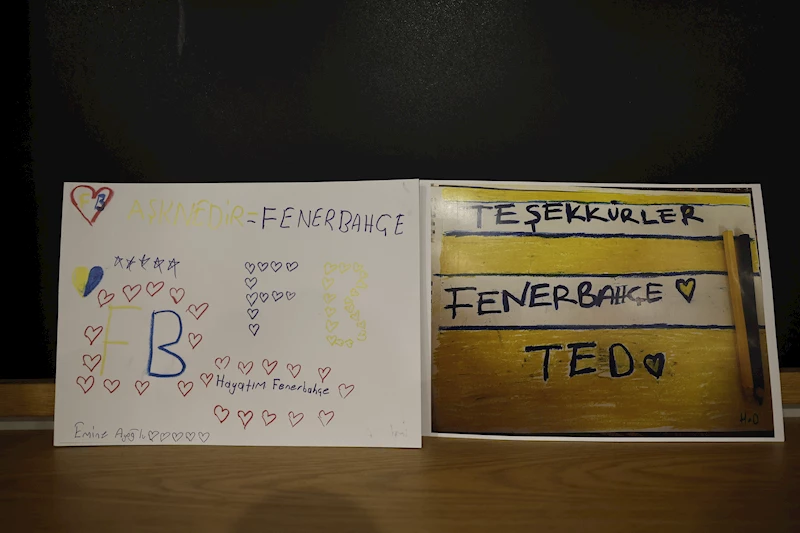 FB
AŞKNEDİR=
=FENERBAHGE
FB
FB
Hayatım Fenerbahçe
Emine
TEŞEKKÜRLER
FENERBAHÇE
TED